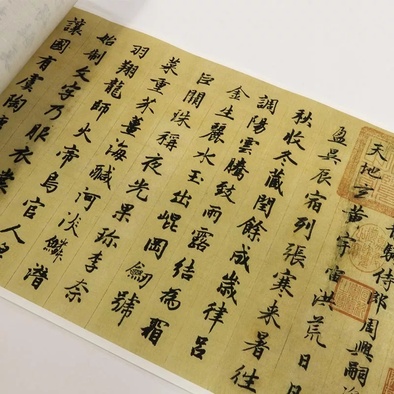 騎侍郎周興嗣
天地玄黃宇宙洪荒日
盈昃辰宿列張寒来暑往
秋收冬藏閏餘成歲律呂
調陽雲騰致雨露結為霜
金生麗水玉出崐岡劒號
巨闕珠稱夜光果珍李奈
菜重芥薑海醎河淡鱗潛
羽翔龍師火帝鳥官人
始制文字乃服衣裳
讓國有虞陶